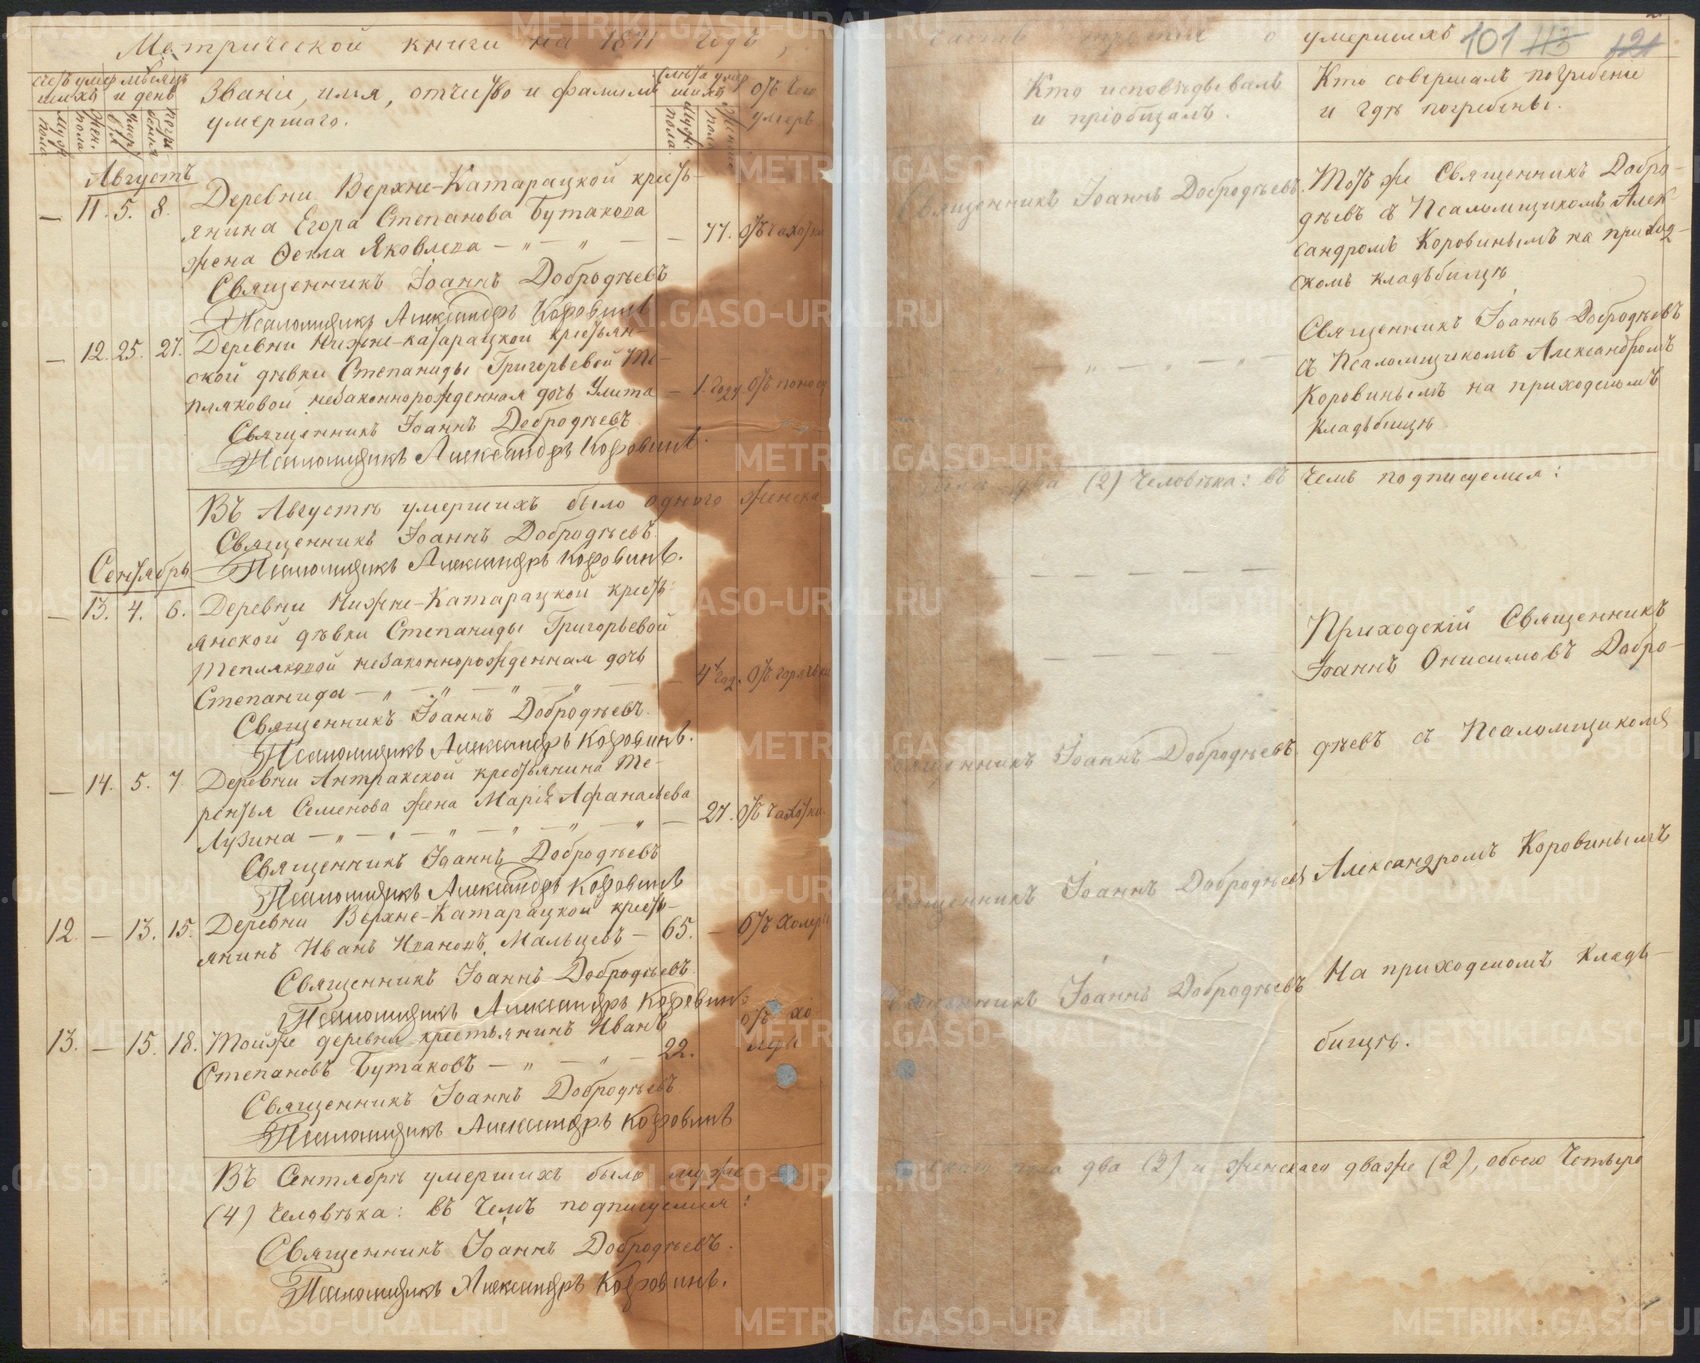 Метрической книги на 1871 годъ,
счетъ умершихъ
муж. пола
жен. пола
месяцъ и день
смерти
погребенія
Званіе, имя, отчество и фамилія
умершаго.
Слета умершихъ
муж. пола
женска
отъ чего
умеръ
Августъ
— 11. 5. 8. Деревни Верхне-Катарацкой кресть-
янина Егора Степанова Бутакова
жена Фекла Яковлева — „ — „ — — 77. отъ чахотки
Священникъ Іоаннъ Добродѣевъ
Псаломщикъ Александръ Коровинъ
— 12. 25. 27. Деревни Нижне-катарацкой крестьян-
ской дѣвки Степаниды Григорьевой Те-
пляковой незаконнорожденная дочь Улита — 1. года отъ поноса
Священникъ Іоаннъ Добродѣевъ
Псаломщикъ Александръ Коровинъ.
Въ Августѣ умершихъ было одного женска
Священникъ Іоаннъ Добродѣевъ
Псаломщикъ Александръ Коровинъ.
Сентябрь
— 13. 4. 6. Деревни Нижне-Катарацкой кресть
янской дѣвки Степаниды Григорьевой
Тепляковой незаконнорожденная дочь
Степанида — „ — „ — „ — „ — — 4 год. отъ горячки
Священникъ Іоаннъ Добродѣевъ.
Псаломщикъ Александръ Коровинъ.
— 14. 5. 7. Деревни Антракской крестьянина Те-
рентья Семенова жена Марія Афанасьева
Лузина — „ — „ — „ — „ — „ — 27. отъ чахотки
Священникъ Іоаннъ Добродѣевъ
Псаломщикъ Александръ Коровинъ
12. — 13. 15. Деревни Верхне-Катарацкой кресть-
янинъ Иванъ Ивановъ Мальцевъ — 65. — отъ холеры
Священникъ Іоаннъ Добродѣевъ
Псаломщикъ Александръ Коровинъ
13. — 15. 18. Тойже деревни крестьянинъ Иванъ
Степановъ Бутаковъ — „ — „ — 22. отъ хо
леры
Священникъ Іоаннъ Добродѣевъ
Псаломщикъ Александръ Коровинъ
Въ Сентябрѣ умершихъ было муже
(4) человѣка: въ чемъ подписуемся:
Священникъ Іоаннъ Добродѣевъ.
Псаломщикъ Александръ Коровинъ.
часть третья о умершихъ 101 113 121
Кто исповѣдывалъ
и пріобщалъ.
Кто совершалъ погребеніе
и гдѣ погребены.
Священникъ Іоаннъ Добродѣевъ.
Тотъ же Священникъ Добро-
дѣевъ съ Псаломщикомъ Алек-
сандромъ Коровинымъ на приход-
скомъ кладбищѣ
Священникъ Іоаннъ Добродѣевъ
съ Псаломщикомъ Александромъ
Коровинымъ на приходскомъ
кладбищѣ
пола два (2) человѣка: въ чемъ подписуемся:
Приходскій Священникъ
Іоаннъ Онисимовъ Добро-
Священникъ Іоаннъ Добродѣевъ дѣевъ съ Псаломщикомъ
Священникъ Іоаннъ Добродѣевъ Александромъ Коровинымъ
Священникъ Іоаннъ Добродѣевъ На приходскомъ кладъ-
бищѣ.
скаго пола два (2) и женскаго дваже (2), обоего четыре
METRIKI.GASO-URAL.RU